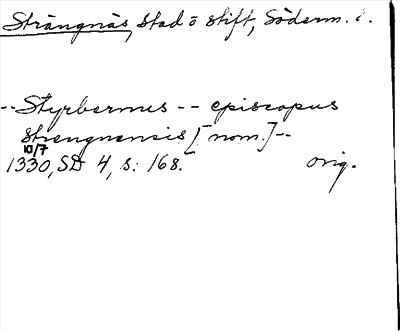 Strängnäs, stad o stift, Söderm. l.
-- Styrbernus -- episcopus
Strengnensis [nom.] --
10/7
1330, SD 4, s: 168. orig.